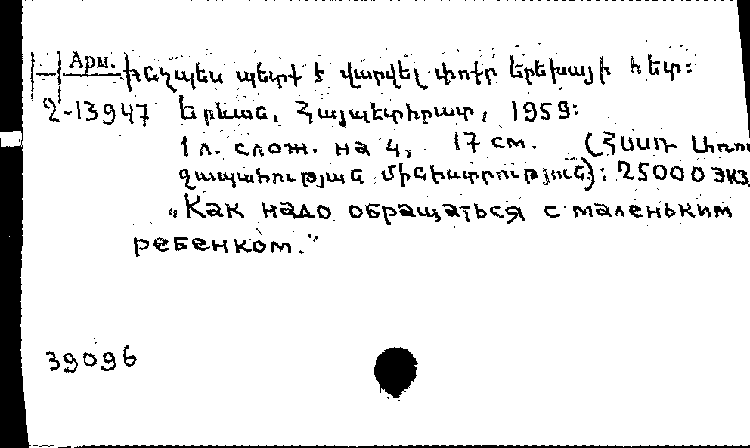 Арм. Ինչպես պետք է վարվել փոքր երեխայի հետ:
2-13947 Երևան, Հայպետհրատ, 1959:
1 л. слож. на 4, 17 см. (ՀՍՍՌ Առող
ջապահության մինիստրություն): 25000 экз
„Как надо обращаться с маленьким
ребенком."
39096